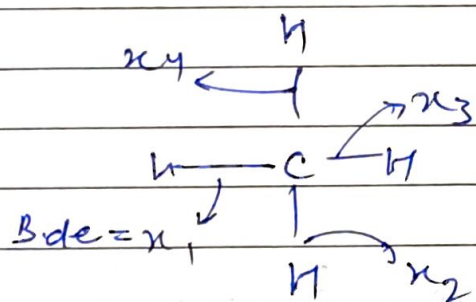 H
x4
x3
H C H
B.de = x1
H x2